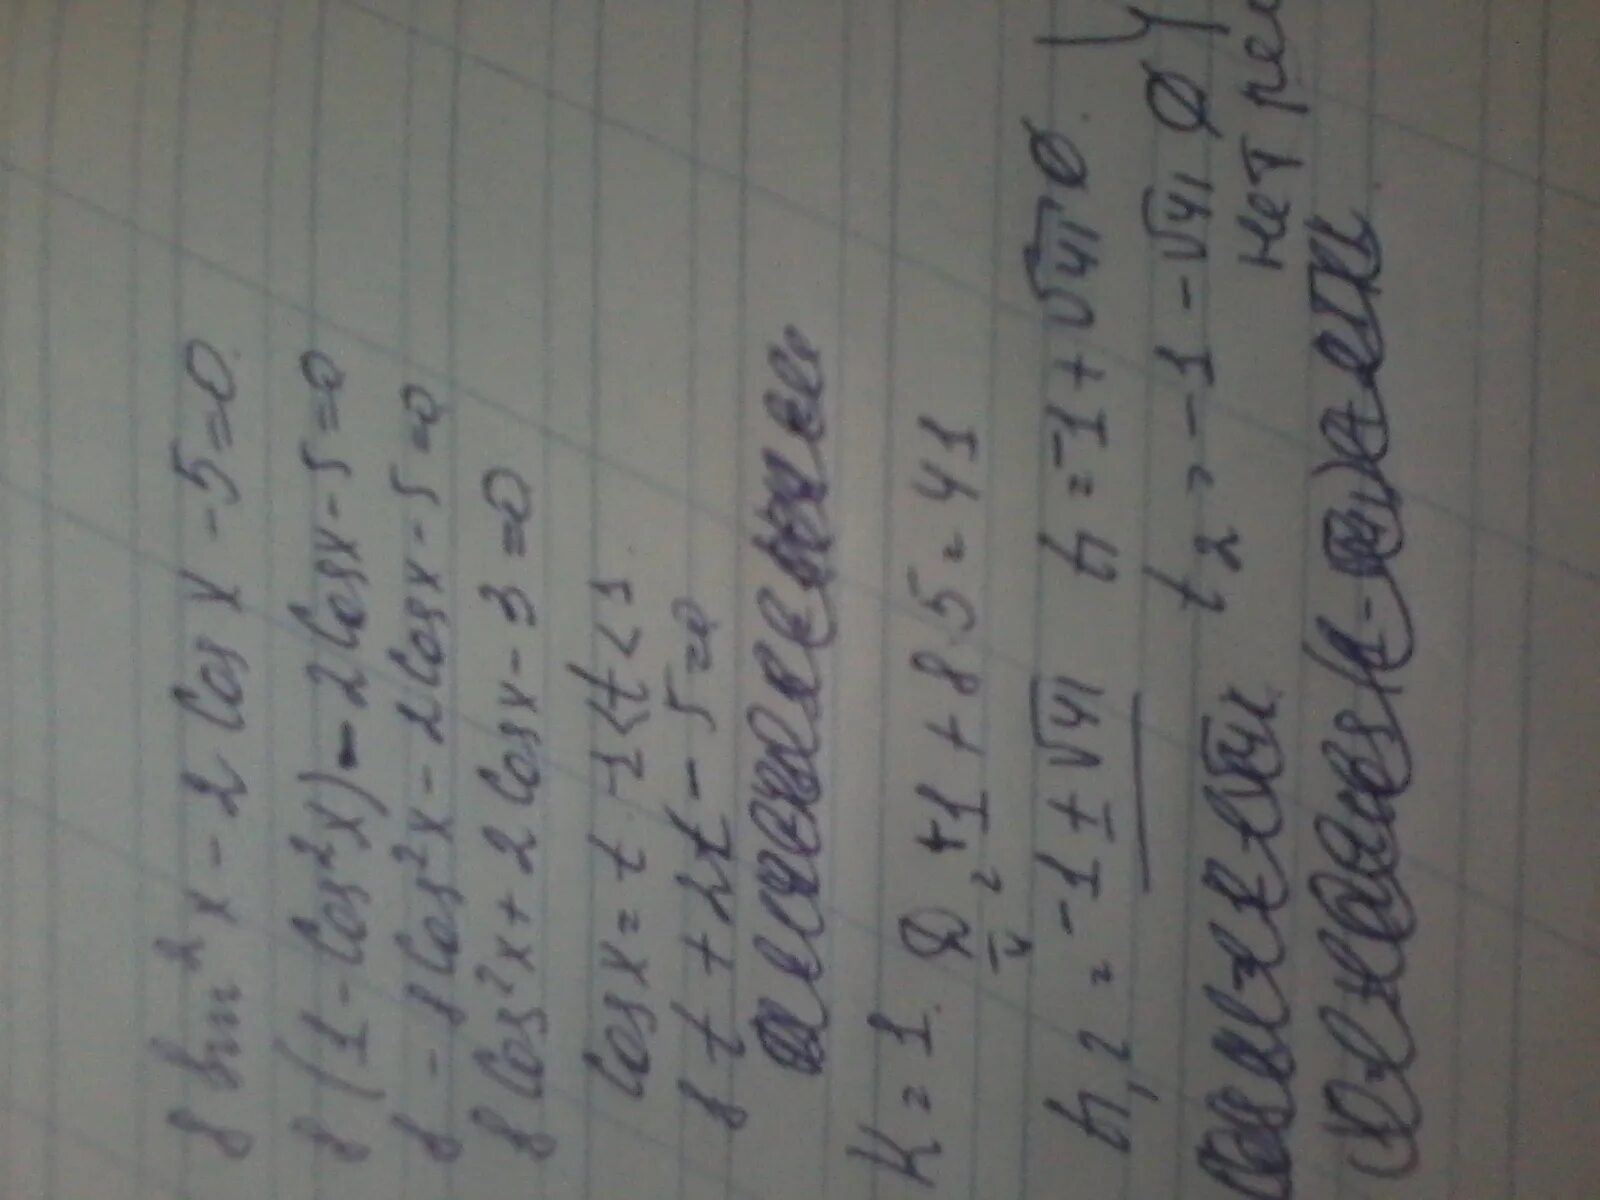 8 sin² x - 2 Cos x - 5 = 0.
8 (1 - Cos² x) - 2 Cos x - 5 = 0
8 - 8 Cos² x - 2 Cos x - 5 = 0
8 Cos² x + 2 Cos x - 3 = 0
Cos x = t -1 < t < 1.
8 t + 2t - 5 = 0
K = 1. D/4 = +1 + 8 · 5 = 41
t1,2 = -1 ± √41 t1 = -1 + √41 Ø.
t2 = -1 - √41 Ø
нет